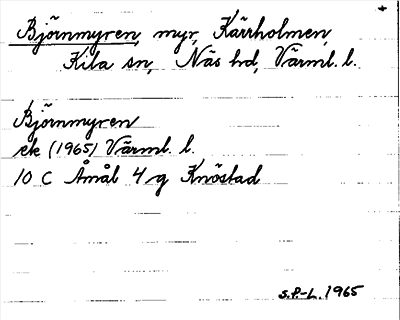 Björnmyren, myr, Kärrholmen,
Kila sn, Näs hd, Värml. l.
Björnmyren
ek (1965) Värml. l.
10 C Åmål 4 g Knöstad
S.P.-L. 1965